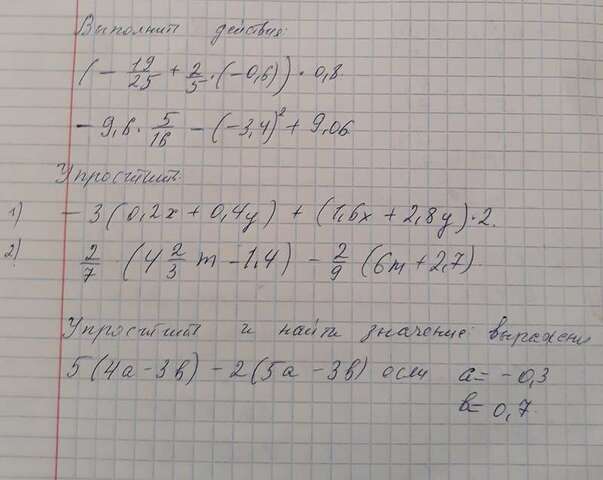 Выполнить действия:
(- 19/25 + 2/5 · (-0,6)) · 0,8.
- 9,6 · 5/16 - (-3,4)² + 9,06
Упростить:
1) - 3 (0,2x + 0,4y) + (1,6x + 2,8y) · 2.
2) 2/7 · (4 2/3 m - 1,4) - 2/9 (6m + 2,7)
Упростить и найти значение выражени
5 (4a - 3в) - 2 (5a - 3в) если a = - 0,3
в = 0,7